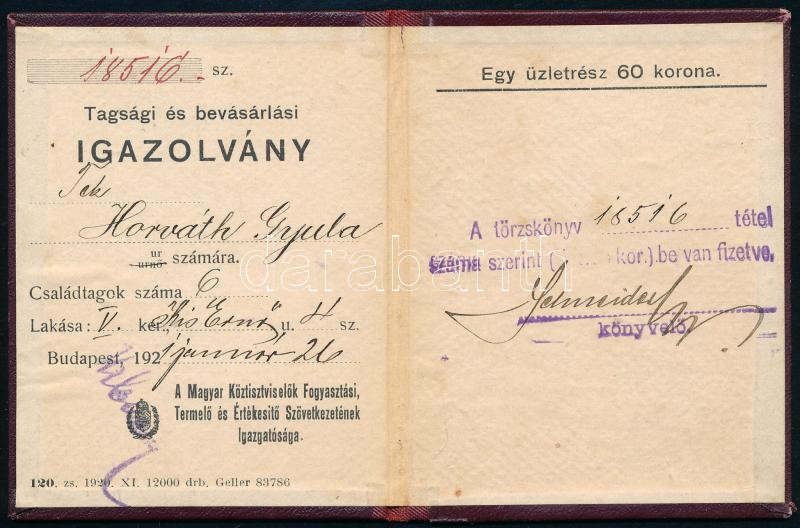 18516.- sz.
Tagsági és bevásárlási
IGAZOLVÁNY
Tek
Horváth Gyula
ur
urnő számára.
Családtagok száma 6
Lakása: V. ker. Kis Ernő u. 4 sz.
Budapest, 1921 január 26
A Magyar Köztisztviselők Fogyasztási,
Termelő és Értékesitő Szövetkezetének
Igazgatósága.
120. zs. 1920. XI. 12000 drb. Geller 83786
Egy üzletrész 60 korona.
A törzskönyv 18516 tétel
száma szerint ( kor.) be van fizetve.
könyvelő.
darabanth